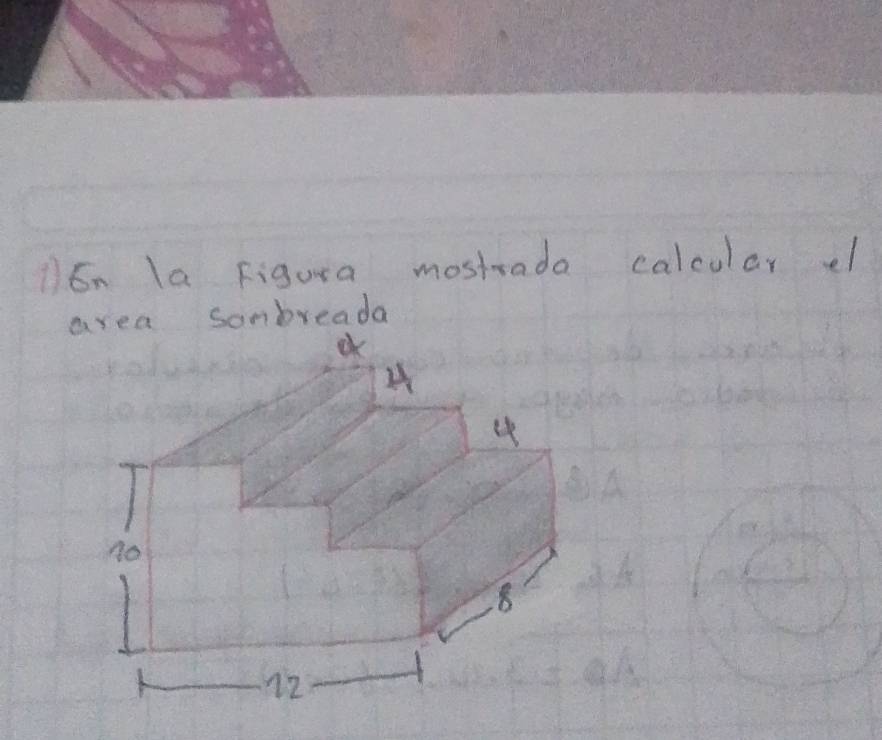 1) En la Figura mostrada calcular el
area sombreada
4
4
4
10
8
12